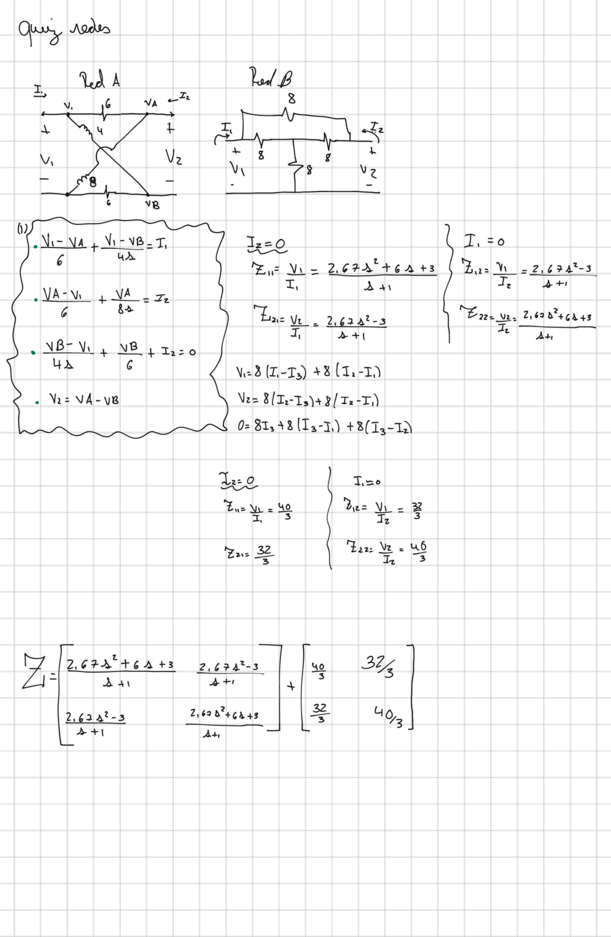 Quiz redes
Red A
Red B
I₁
V₁ 6 VA I₂
+ 4 +
V₁ V₂
- 8 -
6 VB
8
I₁ I₂
+ 8 8 +
V₁ 8 V₂
- -
(1)
• (V₁-VA)/6 + (V₁-VB)/4s = I₁
• (VA-V₁)/6 + VA/8s = I₂
• (VB-V₁)/4s + VB/6 + I₂=0
• V₂= VA-VB
I₂=0
Z₁₁= V₁/I₁ = (2,67s²+6s+3)/(s+1)
Z₂₁= V₂/I₁ = (2,67s²-3)/(s+1)
I₁=0
Z₁₂= V₁/I₂ = (2,67s²-3)/(s+1)
Z₂₂= V₂/I₂ = (2,67s²+6s+3)/(s+1)
V₁=8(I₁-I₃)+8(I₂-I₁)
V₂=8(I₂-I₃)+8(I₂-I₁)
0=8I₃+8(I₃-I₁)+8(I₃-I₂)
I₂=0
Z₁₁= V₁/I₁ = 40/3
Z₂₁= 32/3
I₁=0
Z₁₂= V₁/I₂ = 32/3
Z₂₂= V₂/I₂ = 40/3
Z₁= [ (2,67s²+6s+3)/(s+1) (2,67s²-3)/(s+1) ] + [ 40/3 32/3 ]
[ (2,67s²-3)/(s+1) (2,67s²+6s+3)/(s+1) ] [ 32/3 40/3 ]